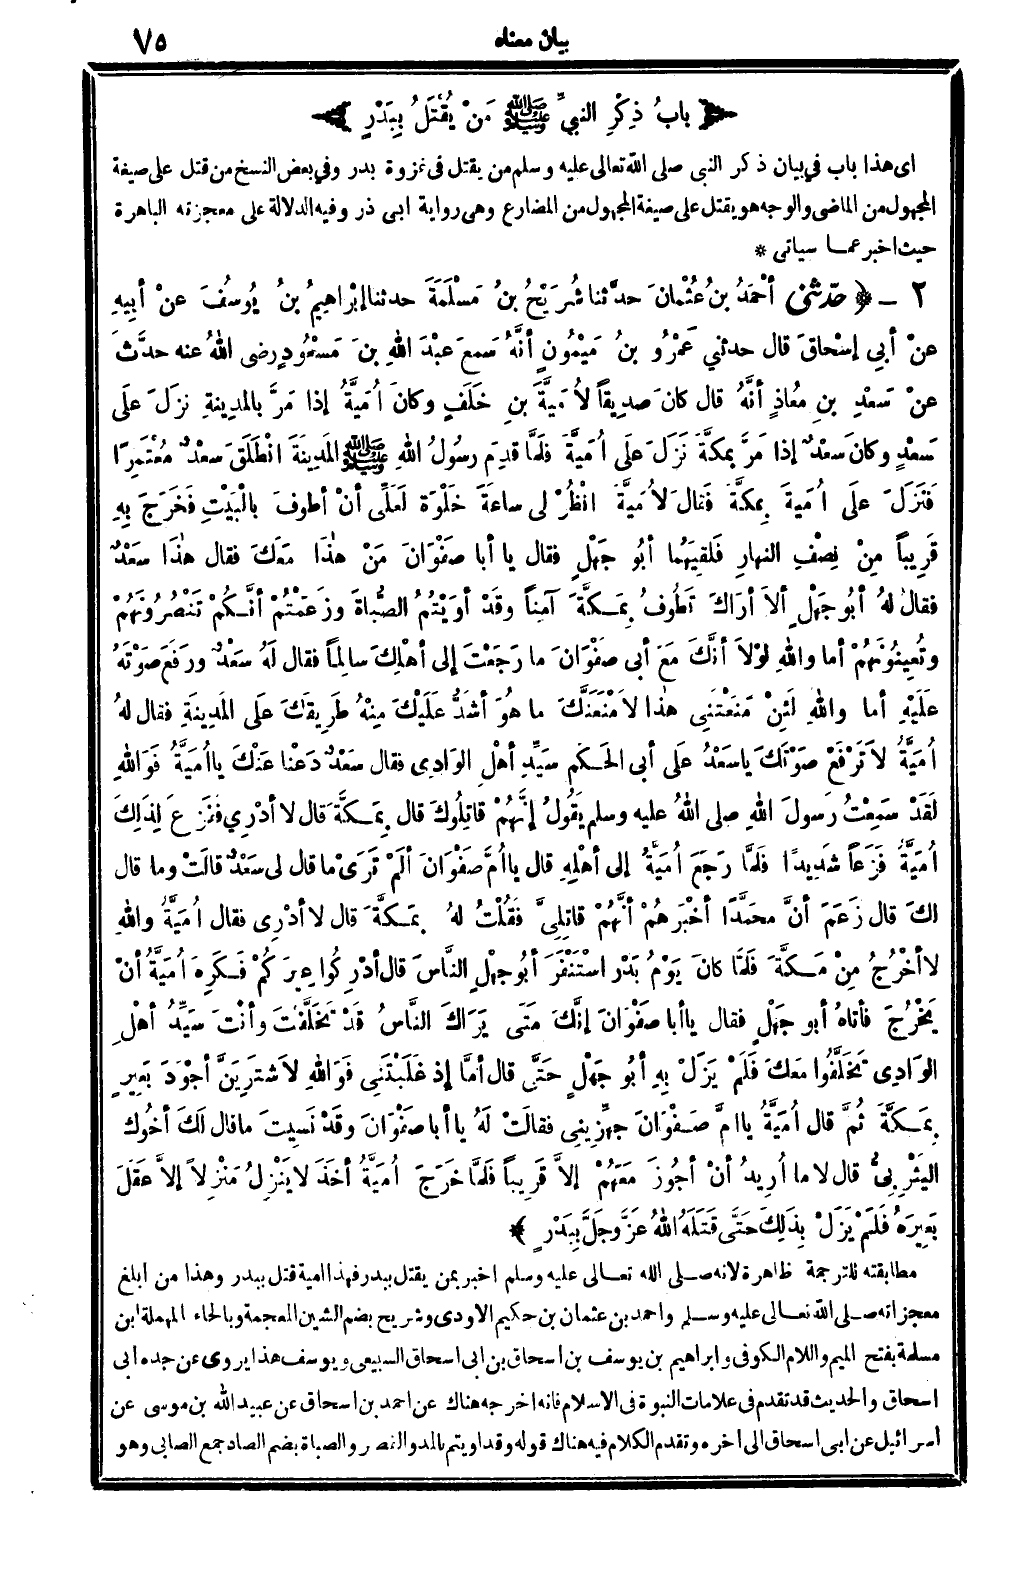 بيان معناه
٧٥
﴿ بابُ ذِكْرِ النبيِّ ﷺ مَنْ يُقْتَلُ بِبَدْرٍ ﴾
اى هذا باب في بيان ذكر النبى صلى الله تعالى عليه وسلم من يقتل فى غزوة بدر وفي بعض النسخ من قتل على صيغة
المجهول من الماضى والوجه هو يقتل على صيغة المجهول من المضارع وهى رواية ابى ذر وفيه الدلالة على معجزته الباهرة
حيث اخبر عما سياتى *
٢ - ﴿ حدّثنى أحْمَدُ بنُ عُثْمانَ حدَّثنا شُرَيْحُ بنُ مَسْلَمَةَ حدثنا إبْراهِيمُ بنُ يُوسُفَ عنْ أبِيهِ
عنْ أبي إسْحاقَ قال حدثني عَمْرُو بنُ مَيْمُونٍ أنَّهُ سَمِعَ عبْدَ اللهِ بنَ مَسْعُودٍ رضى اللهُ عنه حدَّثَ
عنْ سَعْدِ بنِ مُعاذٍ أنَّهُ قال كانَ صَدِيقاً لأُمَيَّةَ بنِ خَلَفٍ وكانَ اُمَيَّةُ إذا مَرَّ بالمدِينةِ نزَلَ علَى
سَعْدٍ وكانَ سَعْدٌ إذا مَرَّ بمكَّةَ نَزَلَ علَى اُمَيَّةَ فلَمَّا قدِمَ رسولُ اللهِ ﷺ المَدِينَةَ انْطَلَقَ سَعْدٌ مُعْتَمِرًا
فَنَزَلَ علَى اُمَيةَ بِمكَّةَ فقال لأُمَيَّةَ انْظُرْ لى ساعةَ خَلْوَة لَعَلِّى أنْ أطوفَ بالْبَيْتِ فَخَرَجَ بِهِ
قَرِيباً مِنْ نِصْفِ النهارِ فلَقِيَهُما أبُو جَهْلٍ فقال يا أبا صَفْوَانَ مَنْ هذَا مَعَكَ فقال هذَا سَعْدٌ
فقال لهُ أبُو جَهْلٍ ألاَ أرَاكَ تَطُوفُ بِمَكَّةَ آمِناً وقَدْ أوَيْتُمُ الصُّباةَ وزَعَمْتُمْ أنَّكُمْ تَنْصُرُونَهُمْ
وتُعِينُونَهُمْ أما واللهِ لوْلاَ أنَّكَ مَعَ أبى صَفْوَانَ ما رَجَعْتَ إلى أهْلِكَ سالِماً فقال لَهُ سَعْدٌ ورَفَعَ صَوْتَهُ
علَيْهِ أما واللهِ لَئِنْ مَنَعْتَنِى هٰذا لأمْنَعَنَّكَ ما هُوَ أشَدُّ علَيْكَ مِنْهُ طَرِيقَكَ علَى المَدِينَةِ فقال لهُ
اُمَيَّةُ لاَ تَرْفَعْ صَوْتَكَ ياسَعْدُ علَى أبى الحَكَمِ سَيِّدِ أهْلِ الوَادِى فقال سَعْدٌ دَعْنا عنْكَ يا اُمَيَّةُ فَوَاللهِ
لَقَدْ سَمِعْتُ رسولَ اللهِ صلى اللهُ عليه وسلم يَقُولُ إنَّهُمْ قاتِلُوكَ قال بِمَكَّةَ قال لا أدْرِي ففَزِعَ لِذَلِكَ
اُمَيَّةُ فَزَعاً شَدِيدًا فلَمَّا رَجَعَ اُمَيَّةُ إلى أهْلِهِ قال يا اُمَّ صَفْوَانَ ألَمْ تَرَىْ ما قال لى سَعْدٌ قالَتْ وما قال
لكَ قال زَعَمَ أنَّ محَمَّدًا أخْبَرَهُمْ أنَّهُمْ قاتِلِىَّ فَقُلْتُ لهُ بِمَكَّةَ قال لا أدْرِى فقال اُمَيَّةُ واللهِ
لا أخْرُجُ مِنْ مَكَّةَ فلَمَّا كانَ يَوْمُ بَدْرٍ اسْتَنْفَرَ أبُو جهْلٍ النَّاسَ قال أدْرِكُوا عِيرَكُمْ فَكَرِهَ اُمَيَّةُ أنْ
يَخْرُجَ فأتاهُ أبو جَهْلٍ فقال يا أبا صَفْوَانَ إنَّكَ مَتَى يَرَاكَ النَّاسُ قَدْ تَخَلَّفْتَ وأنْتَ سَيِّدُ أهْلِ
الوَادِى تَخَلَّفُوا مَعَكَ فَلَمْ يَزَلْ بِهِ أبُو جَهْلٍ حَتَّى قال أمَّا إذ غَلَبْتَنِى فَوَاللهِ لأشْتَرِيَنَّ أجْوَدَ بَعِيرٍ
بِمَكَّةَ ثُمَّ قال اُمَيَّةُ يا اُمَّ صَفْوَانَ جهِّزِينِى فقالَتْ لَهُ يا أبا صَفْوَانَ وقَدْ نَسِيتَ ماقال لَكَ أخُوكَ
اليَثْرِبِىُّ قال لا ما اُرِيدُ أنْ أجُوزَ مَعَهُمْ إلاَّ قَرِيباً فلَمَّا خَرَجَ اُمَيَّةُ أخَذَ لا يَنْزِلُ مَنْزِلاً إلاَّ عقَلَ
بَعِيرَهُ فَلَمْ يَزَلْ بِذَلِكَ حَتَّى قَتَلَهُ اللهُ عَزَّ وجَلَّ بِبَدْرٍ ﴾
مطابقته للترجمة ظاهرة لانه صلى الله تعالى عليه وسلم اخبر بمن يقتل ببدر فهذا امية قتل ببدر وهذا من ابلغ
معجزاته صلى الله تعالى عليه وسلم واحمد بن عثمان بن حكيم الاودى وشريح بضم الشين المعجمة وبالحاء المهملة ابن
مسلمة بفتح الميم واللام الكوفى وابراهيم بن يوسف بن اسحاق بن ابى اسحاق السبيعى ويوسف هذا يروى عن جده ابى
اسحاق والحديث قد تقدم فى علامات النبوة فى الاسلام فانه اخرجه هناك عن احمد بن اسحاق عن عبيد الله بن موسى عن
اسرائيل عن ابى اسحاق الى آخره وتقدم الكلام فيه هناك قوله وقد اويتم بالمد والقصر والصباة بضم الصاد جمع الصابى وهو